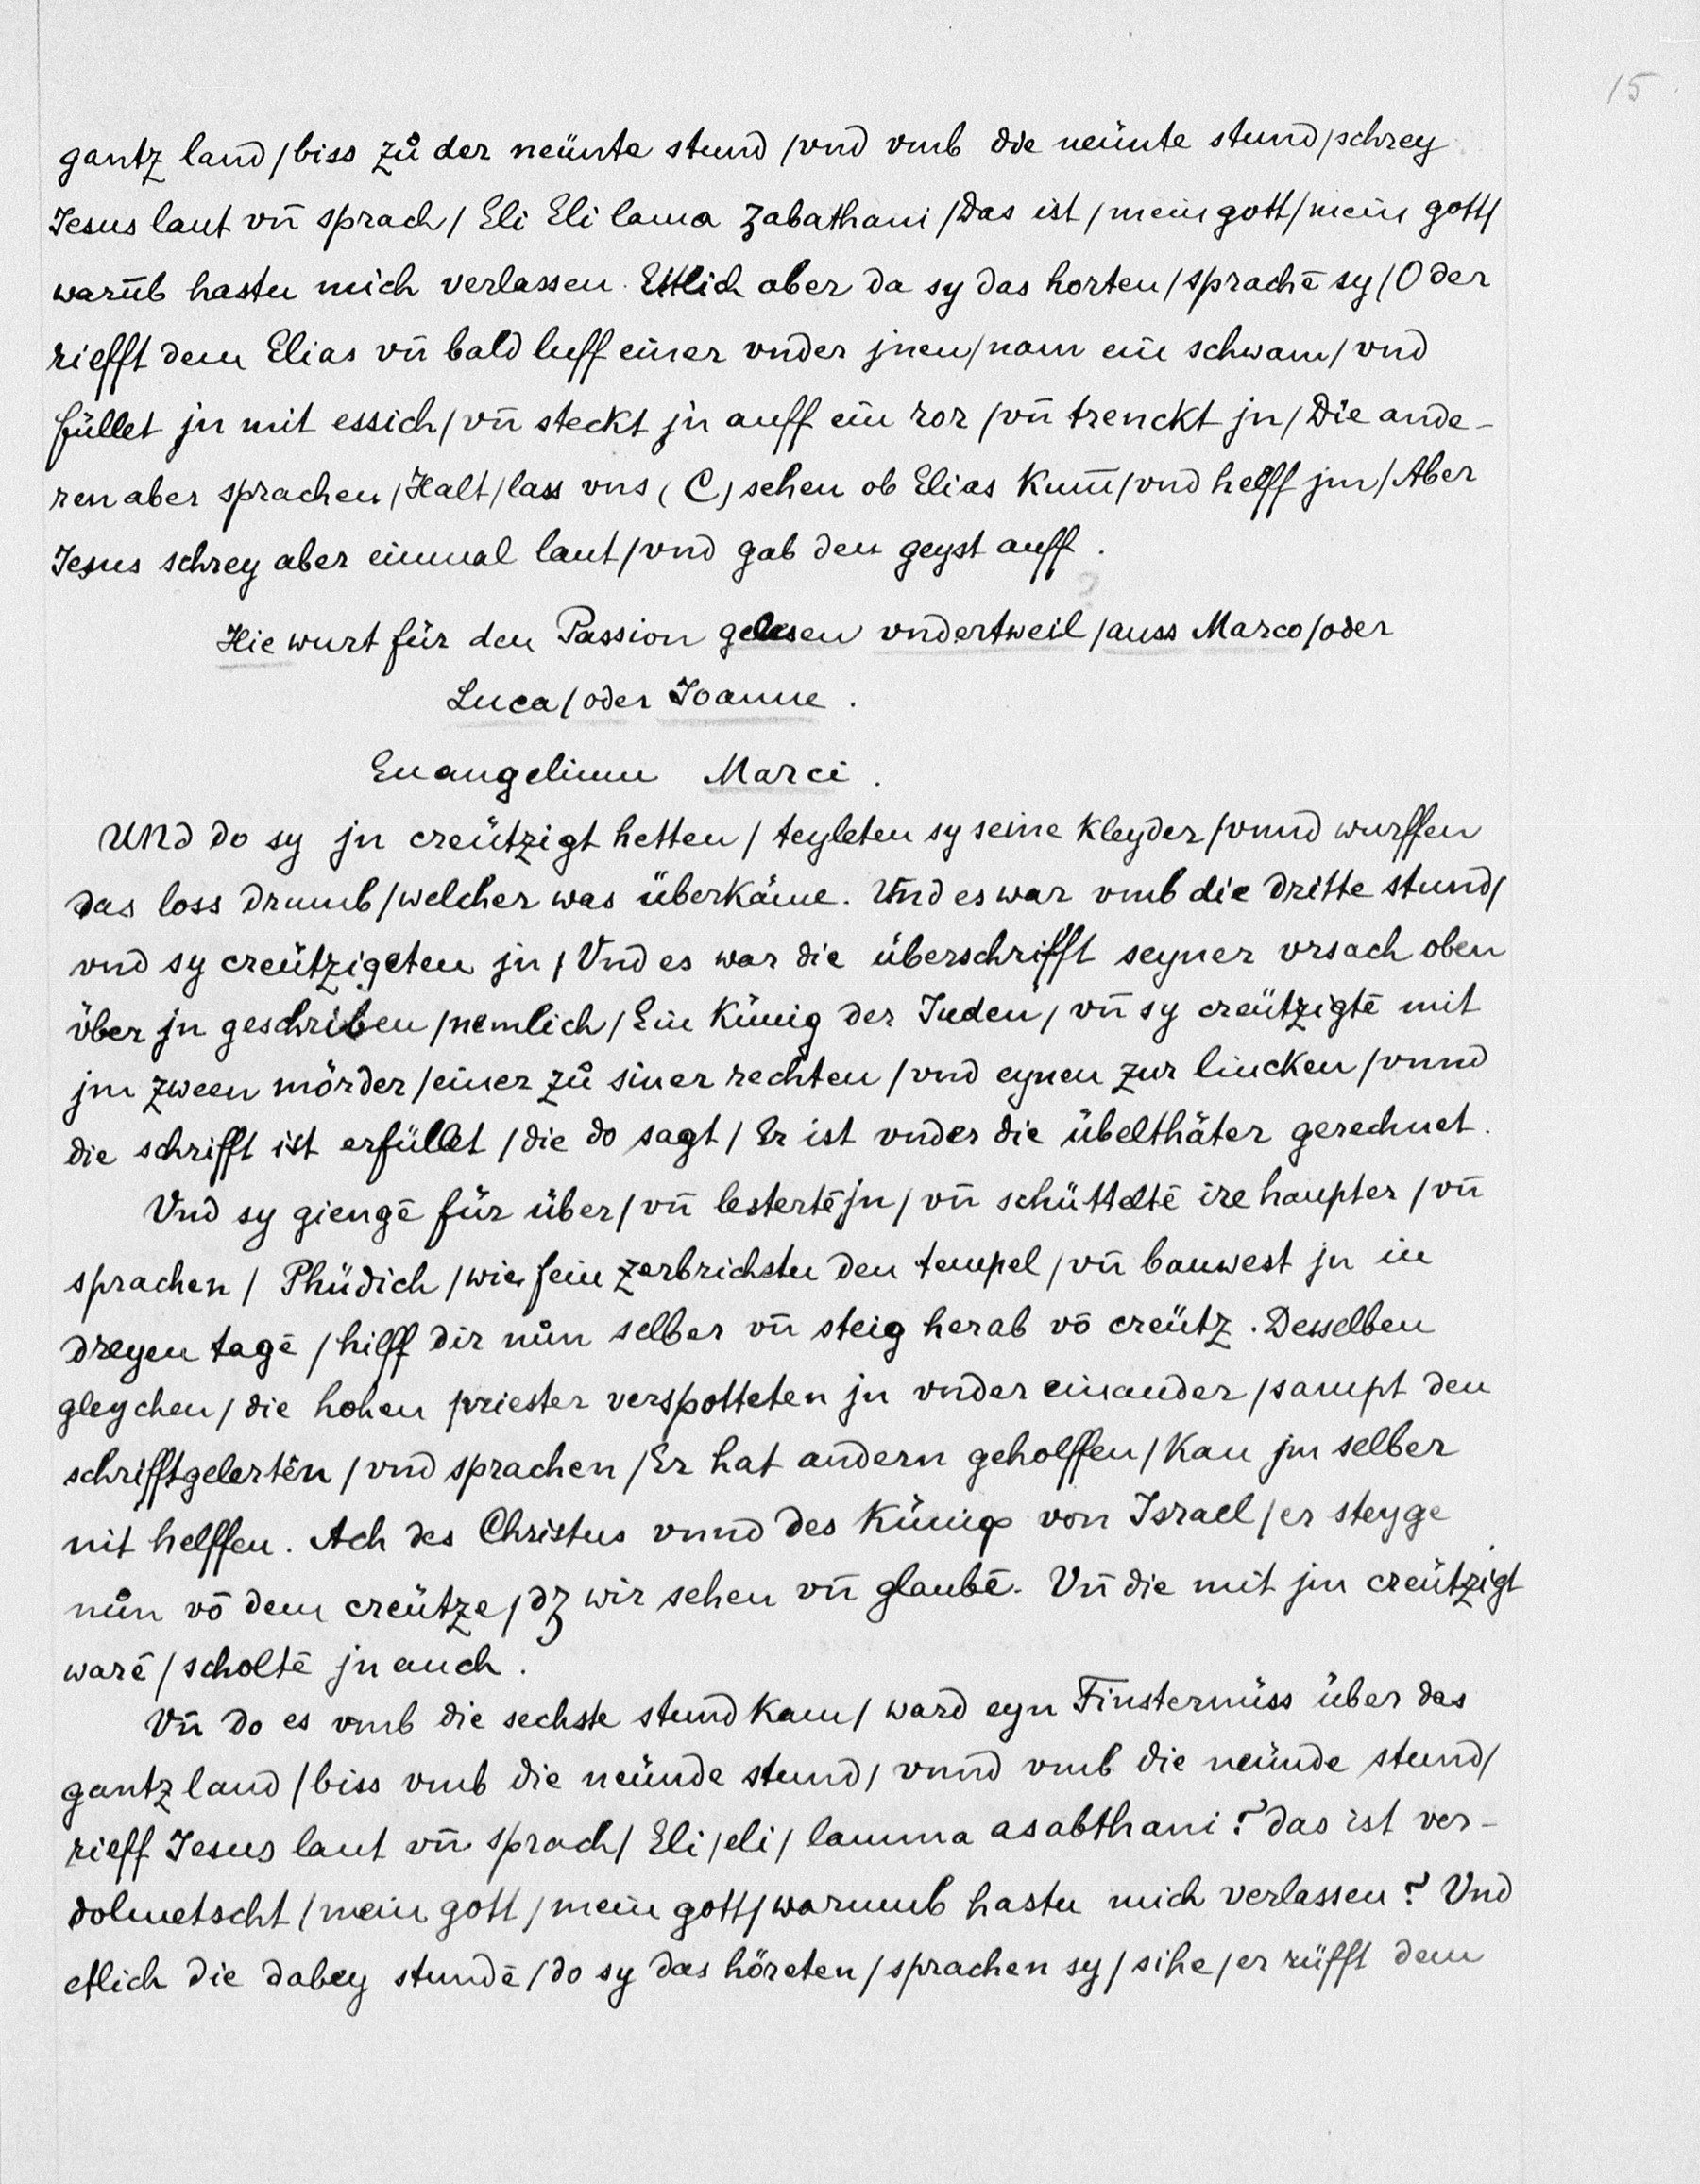 15
gantz land / biss zů der neünte stund / vnd vmb die neünte stund / schrey
Jesus laut vn̄ sprach / Eli Eli lama zabathani / Das ist / mein gott / mein gott /
warūb hastu mich verlassen. Ettlich aber da sy das horten / sprachē sy / O der
riefft dem Elias vn̄ bald luff einer vnder jnen / nam ein schwam / vnd
füllet jn mit essich / vn̄ steckt jn auff ein ror / vn̄ trenckt jn / Die ande-
ren aber sprachen / Halt / lass vns (C) sehen ob Elias kum̄ / vnd helff jm / Aber
Jesus schrey aber einmal laut / vnd gab den geyst auff.
Hie wurt für den Passion gelesen vndertweil / auss Marco / oder
Luca / oder Joanne.
Euangelium Marci.
UNd do sy jn creützigt hetten / teyleten sy seine kleyder / vnnd wurffen
das loss drumb / welcher was überkäme. Vnd es war vmb die dritte stund /
vnd sy creützigeten jn / Vnd es war die überschrifft seyner vrsach oben
über jn geschriben / nemlich / Ein Künig der Juden / vn̄ sy creützigtē mit
jm zween mörder / einer zů siner rechten / vnd eynen zur lincken / vnnd
die schrifft ist erfüllet / die do sagt / Er ist vnder die übelthäter gerechnet.
Vnd sy giengē für über / vn̄ lestertē jn / vn̄ schütteltē ire haupter / vn̄
sprachen / Phüdich / wie fein zerbrichstu den tempel / vn̄ bauwest jn in
dreyen tagē / hilff dir nůn selber vn̄ steig herab vō creütz. Desselben
gleychen / die hohen priester verspotteten jn vnder einander / sampt den
schrifftgelerten / vnd sprachen / Er hat andern geholffen / kan jm selber
nit helffen. Ach des Christus vnnd des Künigs von Israel / er steyge
nůn vō dem creütze / dz wir sehen vn̄ glaubē. Vn̄ die mit jm creützigt
warē / scholtē jn auch.
Vn̄ do es vmb die sechste stund kam / ward eyn Finsternüss über das
gantz land / biss vmb die neünde stund / vnnd vmb die neünde stund /
rieff Jesus laut vn̄ sprach / Eli / eli / lamma asabthani? das ist ver-
dolmetscht / mein gott / mein gott / warumb hastu mich verlassen? Vnd
etlich die dabey stundē / do sy das höreten / sprachen sy / sihe / er rüfft dem